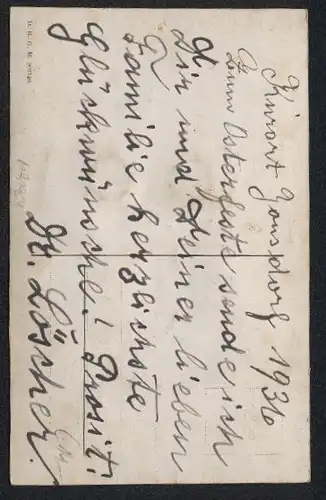 Kurort Jonsdorf 1936
Zum Osterfeste sende ich
Dir und Deiner lieben
Familie herzlichste
Glückwünsche! Prosit!
Löscher.
D. R. G. M.